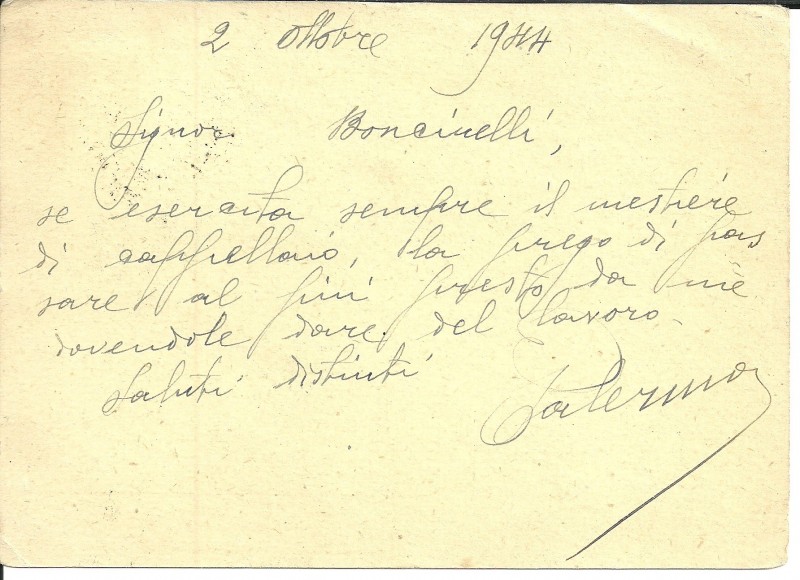 2 Ottobre 1944
Signor Boncinelli,
se esercita sempre il mestiere
di cappellaio, la prego di pas
sare al più presto da me
dovendole dare del lavoro -
Saluti distinti
Palermo